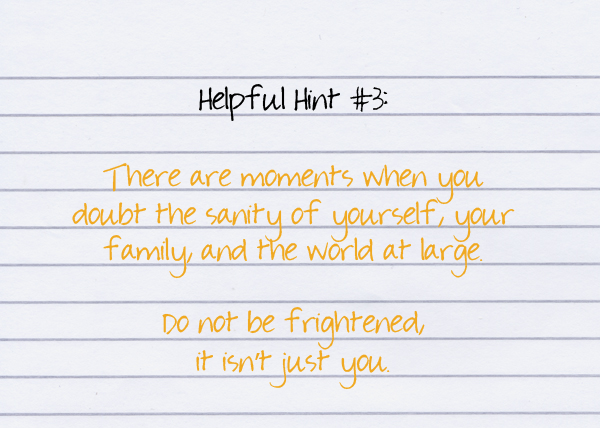 Helpful Hint #3:
There are moments when you
doubt the sanity of yourself, your
family, and the world at large.
Do not be frightened,
it isn't just you.